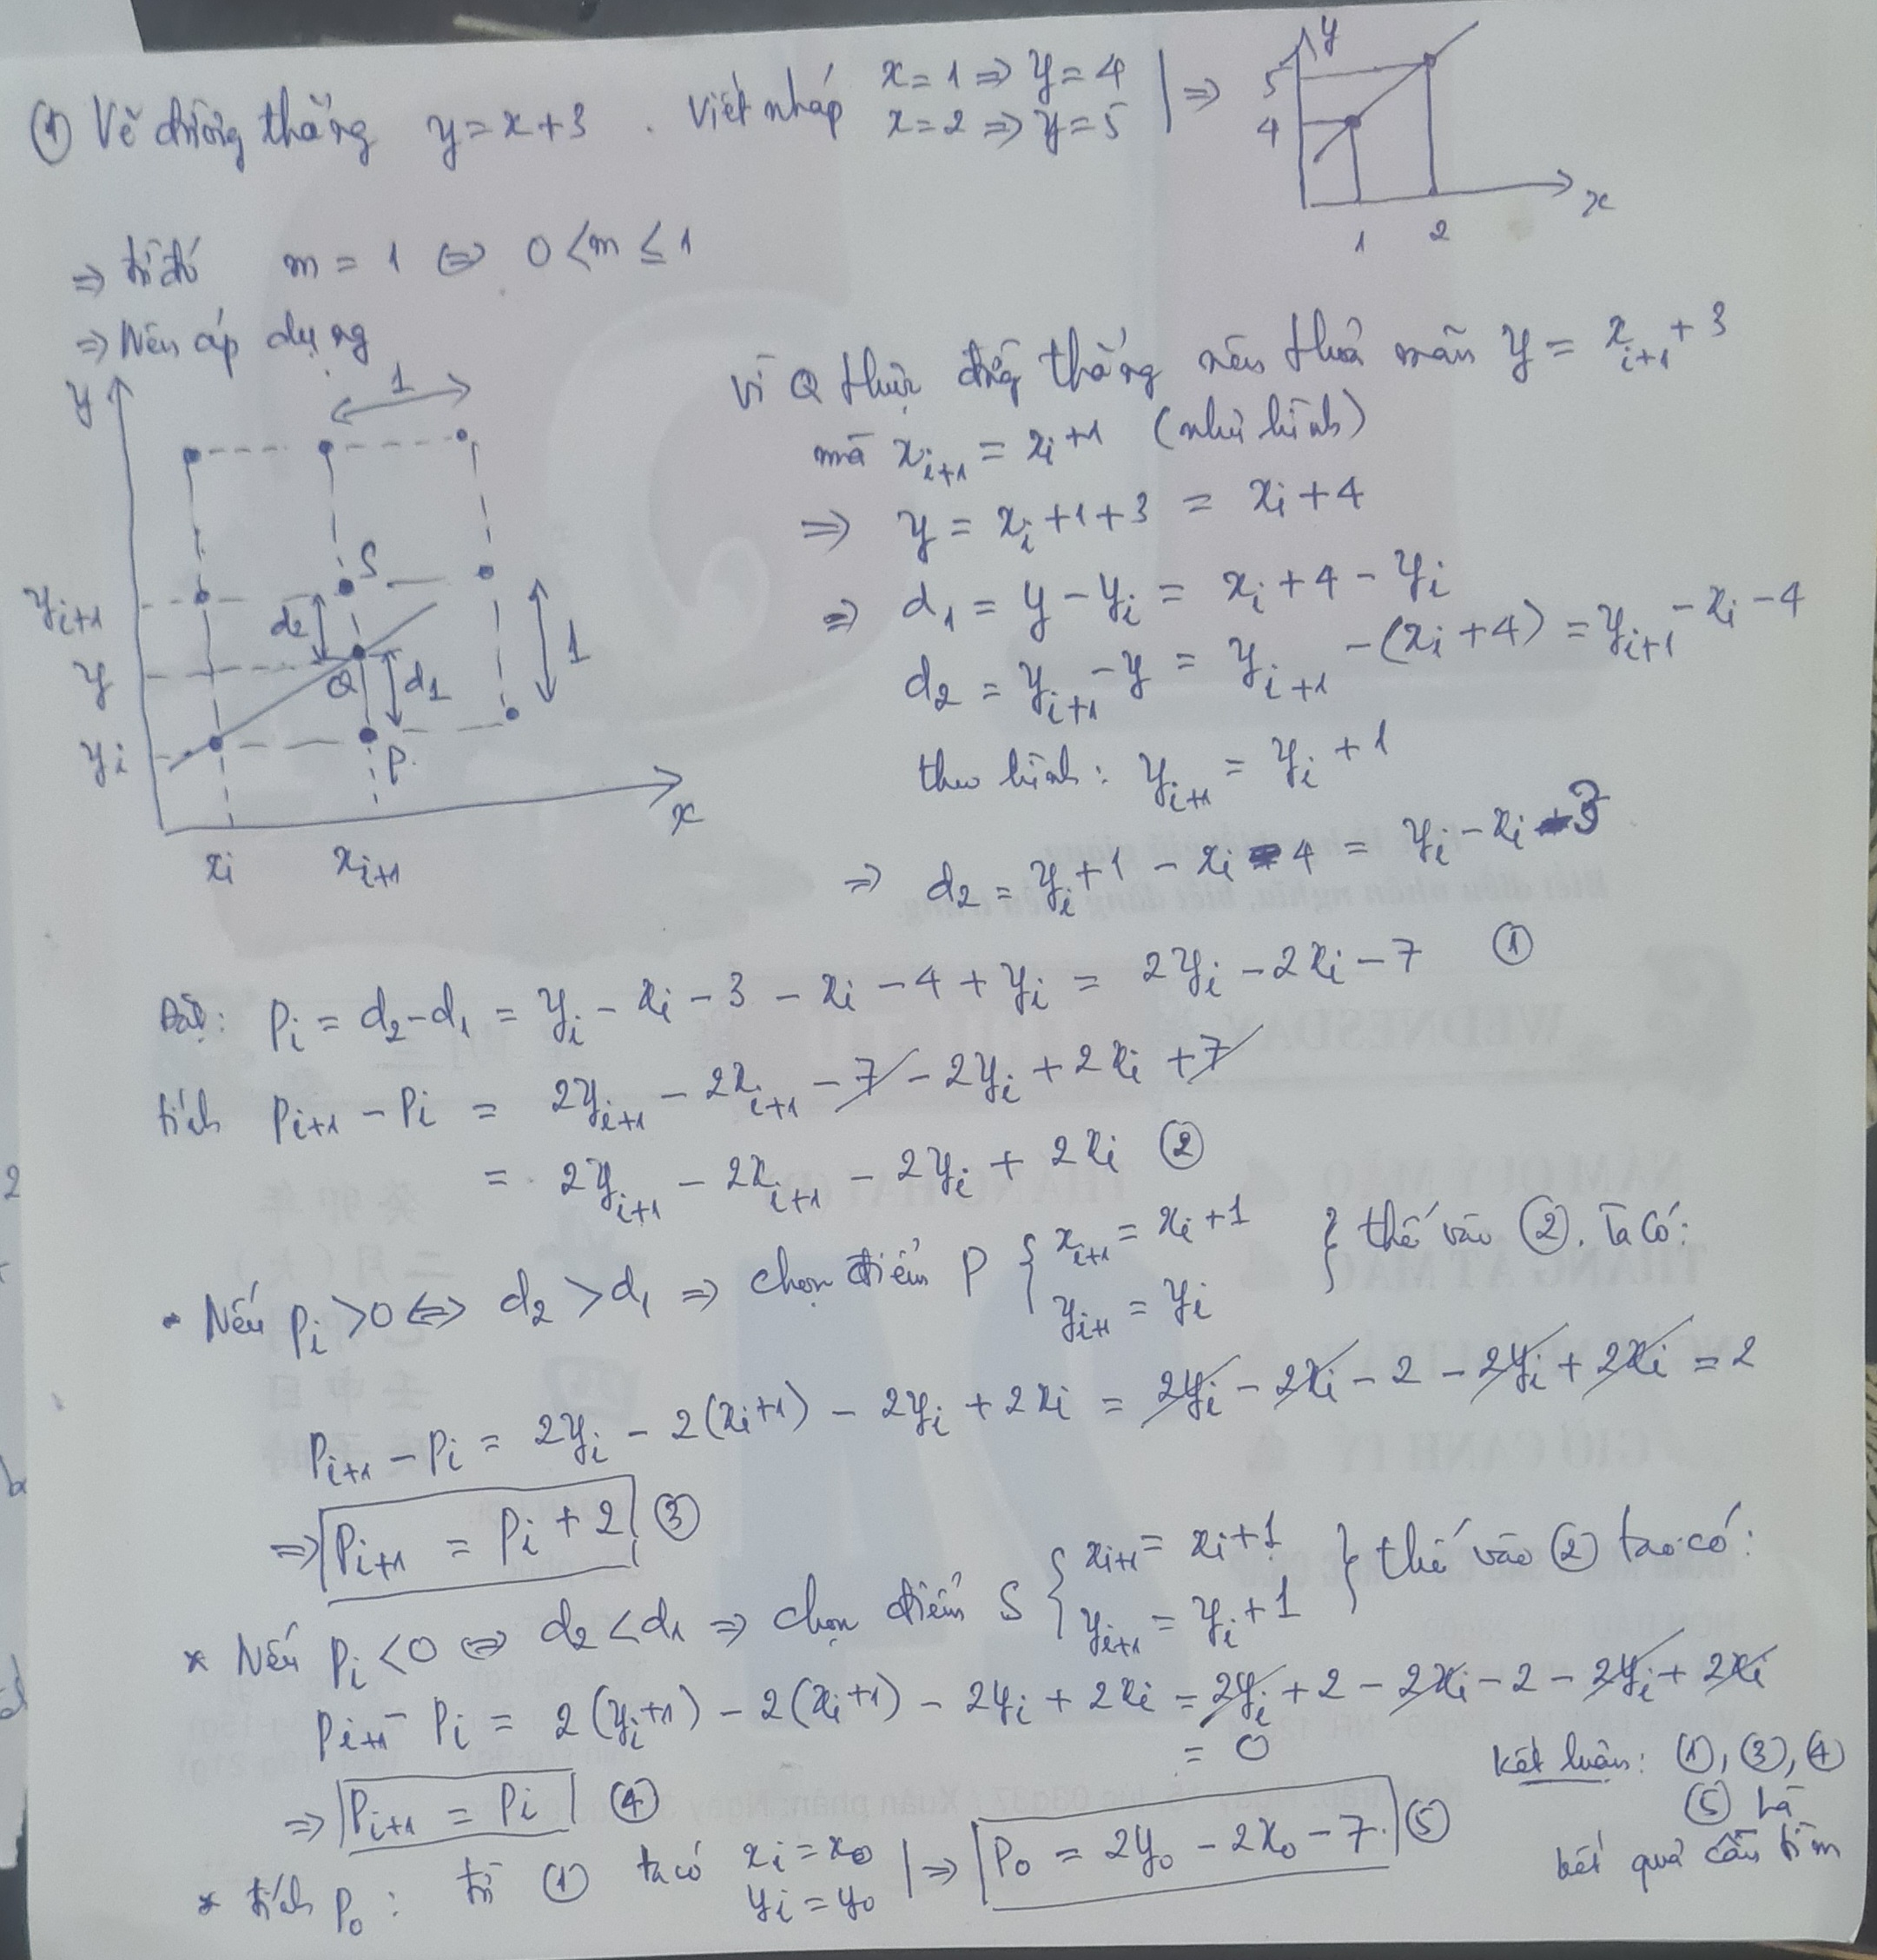 ① Vẽ đường thẳng y = x + 3 . Viết nháp x = 1 ⇒ y = 4
x = 2 ⇒ y = 5 | ⇒
y
5
4
1 2 x
⇒ từ đó m = 1 ⇔ 0 < m ≤ 1
⇒ Nên áp dụng
y
1
S
y_{i+1}
d2
1
y
Q
d1
y_i
P
x
x_i x_{i+1}
Vì Q thuộc đường thẳng nên thoả mãn y = x_{i+1} + 3
mà x_{i+1} = x_i + 1 (như hình)
⇒ y = x_i + 1 + 3 = x_i + 4
⇒ d_1 = y - y_i = x_i + 4 - y_i
d_2 = y_{i+1} - y = y_{i+1} - (x_i + 4) = y_{i+1} - x_i - 4
theo hình: y_{i+1} = y_i + 1
⇒ d_2 = y_i + 1 - x_i - 4 = y_i - x_i - 3
Đặt: P_i = d_2 - d_1 = y_i - x_i - 3 - x_i - 4 + y_i = 2y_i - 2x_i - 7 ①
tính P_{i+1} - P_i = 2y_{i+1} - 2x_{i+1} - 7 - 2y_i + 2x_i + 7
= 2y_{i+1} - 2x_{i+1} - 2y_i + 2x_i ②
• Nếu P_i > 0 ⇔ d_2 > d_1 ⇒ chọn điểm P { x_{i+1} = x_i + 1
y_{i+1} = y_i } thế vào ②. Ta có:
P_{i+1} - P_i = 2y_i - 2(x_i + 1) - 2y_i + 2x_i = 2y_i - 2x_i - 2 - 2y_i + 2x_i = 2
⇒ P_{i+1} = P_i + 2 ③
* Nếu P_i < 0 ⇔ d_2 < d_1 ⇒ chọn điểm S { x_{i+1} = x_i + 1
y_{i+1} = y_i + 1 } thế vào ② ta có:
P_{i+1} - P_i = 2(y_i + 1) - 2(x_i + 1) - 2y_i + 2x_i = 2y_i + 2 - 2x_i - 2 - 2y_i + 2x_i
= 0
⇒ P_{i+1} = P_i ④
* tính P_0 : từ ① ta có x_i = x_0
y_i = y_0 | ⇒ P_0 = 2y_0 - 2x_0 - 7. ⑤
Kết luận: ①, ③, ④
⑤ là
kết quả cần tìm